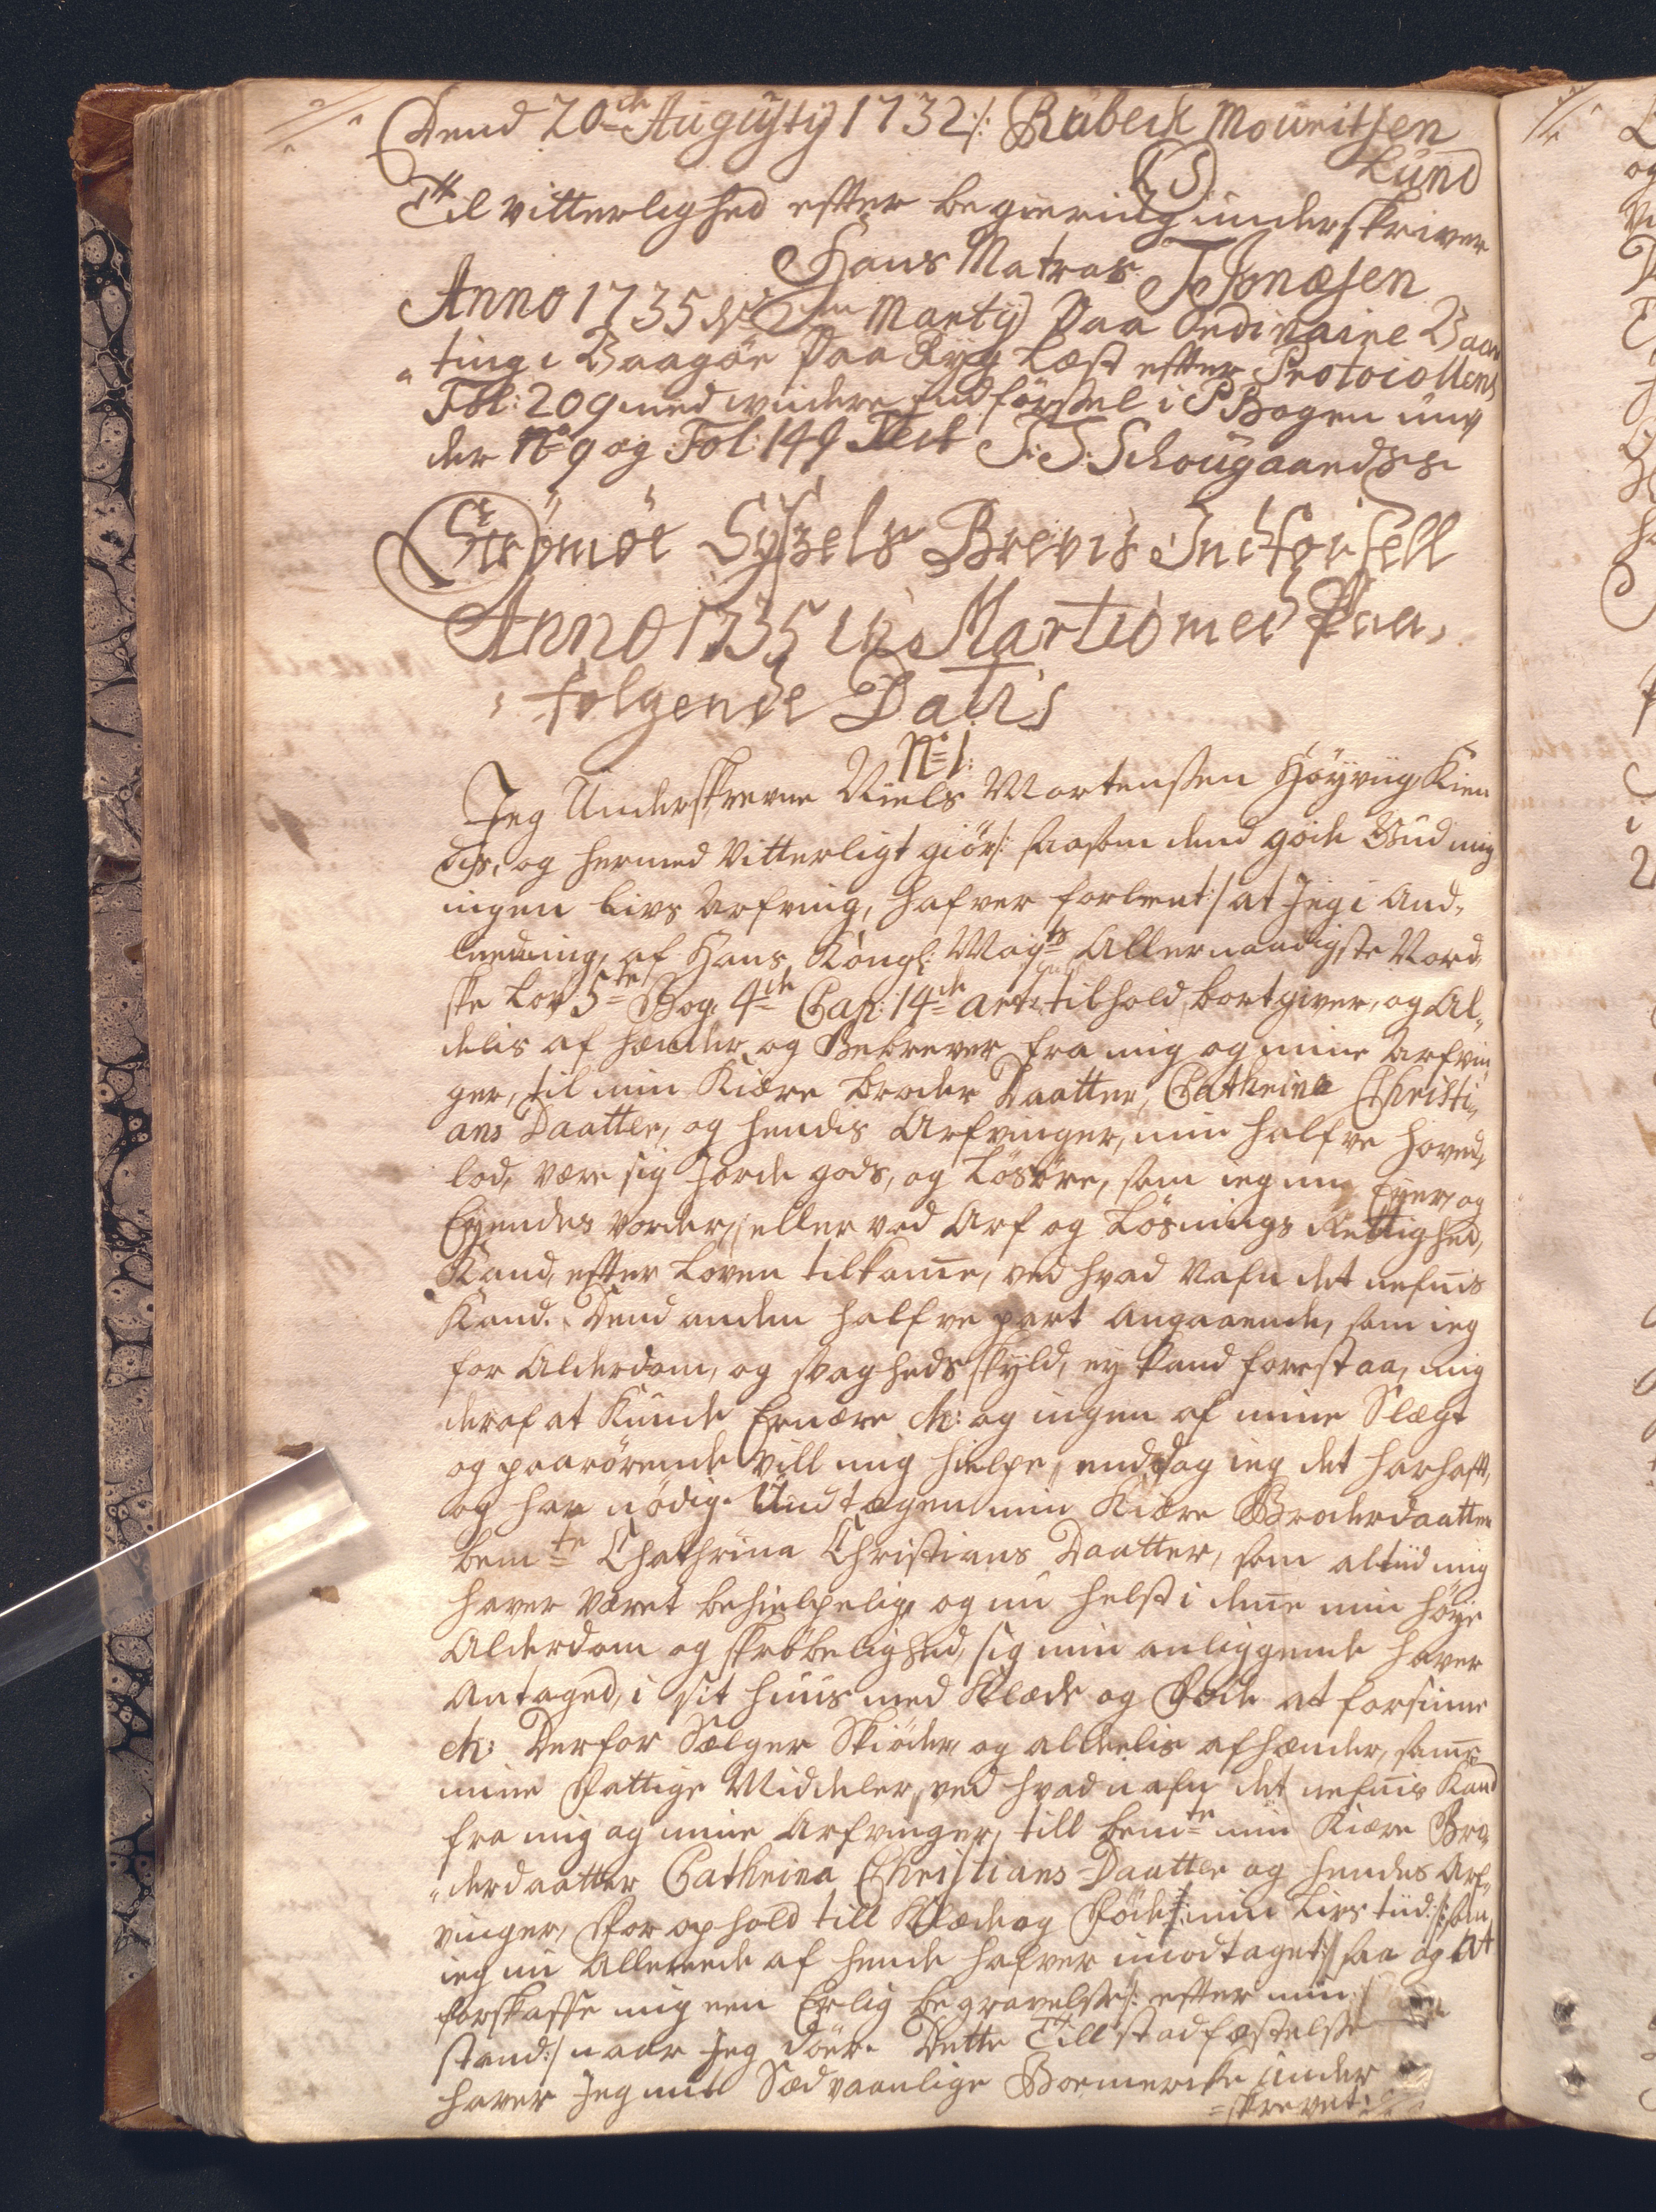 Dend 20de Augusty 1732 /: Rübeck Mouritsen
Lund
(LS)
Til vitterlighed effter begiering underskriver
Hans Matras. J Jonæsen
Anno 1735 d: 2den Marty Paa Ordinaire Vaar
ting i Vaagöe Paa Ryg Læst effter Protocollens
Fol: 209 med videre Indförsel i P Bogen un¬
der No 9 og Fol: 149 Test J: S: Schougaardss
Strömöe Syszels Brevis Indförsell
Anno 1735 in Martio med Paa¬
fölgende Datis
No 1:
Jeg Underskrevne Niels Mortensen Höyviig Kien
dis, og hermed Vitterligt giör /: saasom dend gode Gud mig
ingen Livs Arfving, hafver forlent :/ at Jeg i And¬
leedning, af Hans Kongl: Mayts Allernaadigste Nord¬
ske Lov 5te Bog, 4de Cap: 14de art: tilhold, bortgiver, og Al¬
delis af hænder og Bebrever fra mig og mine Arfvin
ger, til min Kiære Broder Daatter, Cathrina Christi¬
ans Daatter, og hendis Arfvinger, min halfve hoved¬
lod, være sig Jorde gods, og Lösöre, som ieg nu Eyer, og
Eyendes vorder, eller ved Arf og Lösnings Rettighed,
Kand, efter Loven tilkome, ved hvad Nafn det nefnis
Kand. Dend anden halfve part angaaende, som ieg
for Alderdom, og svagheds skyld, ey kand forestaa, mig
deraf at Kunde Ernære etc: og ingen af mine Slægt
og paarörende vill mig hielpe, enddog ieg det har hafft,
og har nödig. Undtagen min Kiære Broderdaatter
bemte Chathrina Christians Daatter, som altiid mig
haver været behielpelig, og nu helst i dene min höye
Alderdom og skröbelighed, sig min anliggende haver
Antaged, i sit huus med Klæde og Föde at forsiune
etc: Derfor Sælger Skiöder, og alldeelis afhænder, same
mine Fattige Middeler, ved hvad nafn det nefnis Kand
fra mig og mine Arfvinger, till bemte min Kiære Bro¬
derdaatter Cathrina Christians Daatter og hendes Arf¬
vinger, for ophold till Klæde og Föde /: min Livs tiid :/: som
ieg nu Allereede af hende hafver imodtaget :/ saa og at
forskaffe mig een Erlig begravelse /: efter min
stand :/ naar Jeg döer. Dette Till stadfæstelse
haver Jeg mit Sædvaanlige Boemercke under
skrevet: